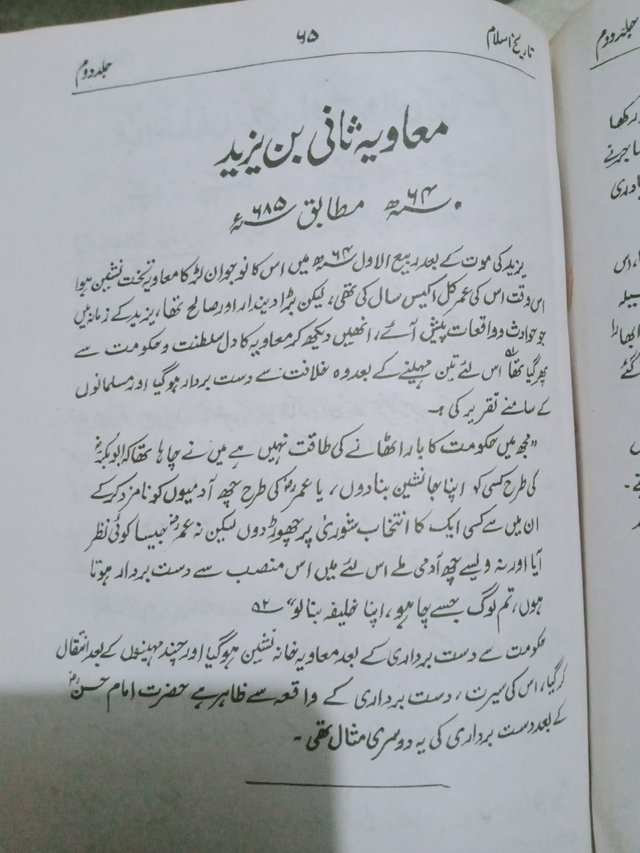 تاریخ اسلام ۶۵ جلد دوم
معاویہ ثانی بن یزید
۶۴ھ مطابق ۶۸۵ء
یزید کی موت کے بعد ربیع الاول ۶۴ھ میں اس کا نوجوان لڑکا معاویہ تخت نشین ہوا
اس وقت اس کی عمر کل اکیس سال کی تھی، لیکن بڑا دیندار اور صالح تھا، یزید کے زمانہ میں
جو حوادث و واقعات پیش آئے، انھیں دیکھ کر معاویہ کا دل سلطنت و حکومت سے
پھر گیا تھا اس لئے تین مہینے کے بعد وہ خلافت سے دست بردار ہو گیا اور مسلمانوں
کے سامنے تقریر کی۔
"مجھ میں حکومت کا بار اٹھانے کی طاقت نہیں ہے میں نے چاہا تھا کہ ابوبکرؓ
کی طرح کسی کو اپنا جانشین بنا دوں، یا عمرؓ کی طرح چھ آدمیوں کو نامزد کر کے
ان میں سے کسی ایک کا انتخاب شوریٰ پر چھوڑ دوں لیکن نہ عمرؓ جیسا کوئی نظر
آیا اور نہ ویسے چھ آدمی ملے اس لئے میں اس منصب سے دست بردار ہوتا
ہوں، تم لوگ جسے چاہو، اپنا خلیفہ بنا لو"
حکومت سے دست برداری کے بعد معاویہ خانہ نشین ہو گیا اور چند مہینوں کے بعد انتقال
کر گیا، اس کی سیرت، دست برداری کے واقعہ سے ظاہر ہے حضرت امام حسنؓ
کے بعد دست برداری کی یہ دوسری مثال تھی۔
جلد دوم